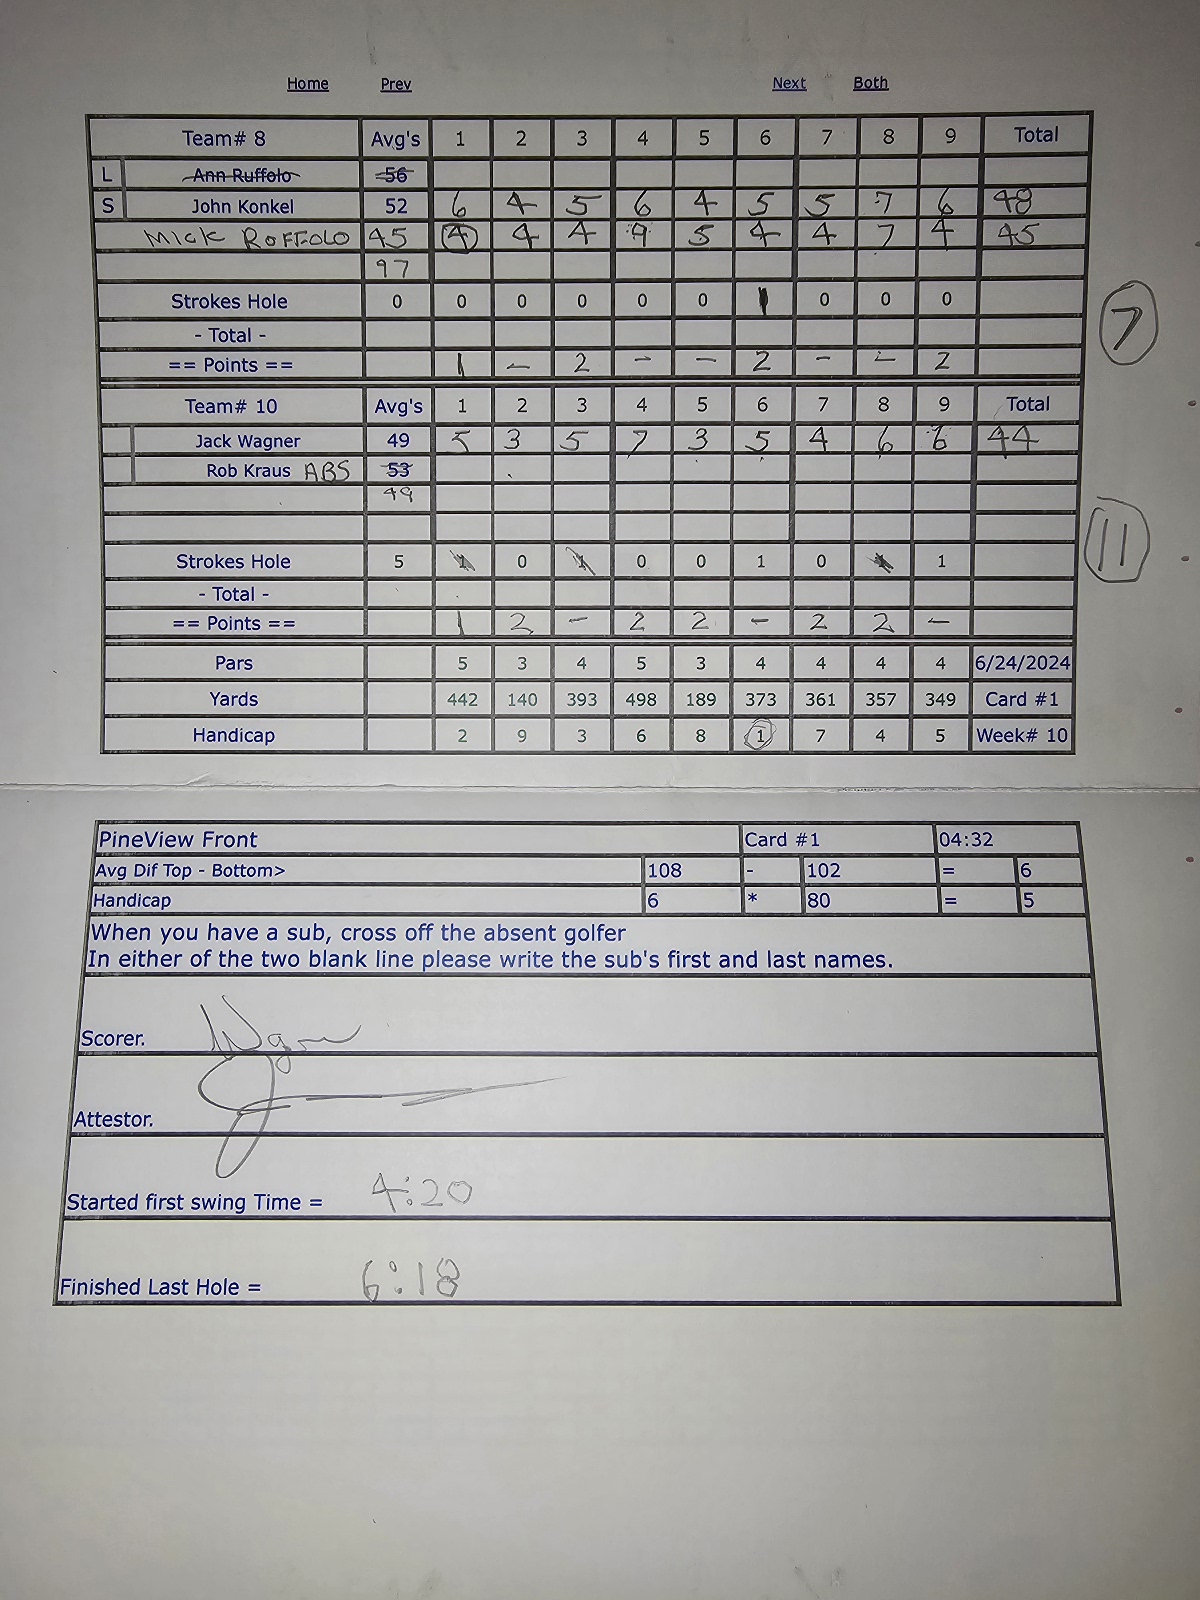 Home Prev Next Both
Team# 8 Avg's 1 2 3 4 5 6 7 8 9 Total
L Ann Ruffolo 56
S John Konkel 52 6 4 5 6 4 5 5 7 6 48
MICK ROFFOLO 45 4 4 4 9 5 4 4 7 4 45
97
Strokes Hole 0 0 0 0 0 0 1 0 0 0
7
- Total -
== Points == 1 - 2 - - 2 - - 2
Team# 10 Avg's 1 2 3 4 5 6 7 8 9 Total
Jack Wagner 49 5 3 5 7 3 5 4 6 6 44
Rob Kraus ABS 53
49
11
Strokes Hole 5 1 0 1 0 0 1 0 1 1
- Total -
== Points == 1 2 - 2 2 - 2 2 -
Pars 5 3 4 5 3 4 4 4 4 6/24/2024
Yards 442 140 393 498 189 373 361 357 349 Card #1
Handicap 2 9 3 6 8 1 7 4 5 Week# 10
PineView Front Card #1 04:32
Avg Dif Top - Bottom> 108 - 102 = 6
Handicap 6 * 80 = 5
When you have a sub, cross off the absent golfer
In either of the two blank line please write the sub's first and last names.
Scorer.
Attestor.
Started first swing Time = 4:20
Finished Last Hole = 6:18